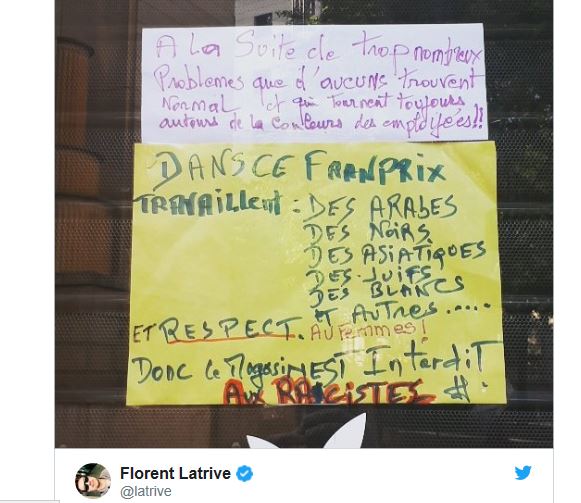 A La Suite de trop nombreux
Problemes que d'aucuns trouvent
Normal et qui tournent toujours
autours de la couleurs des employées!!
DANS CE FRANPRIX
TRAVAILLENT : DES ARABES
DES NOIRS
DES ASIATIQUES
DES JUIFS
DES BLANCS
ET AUTRES.....
ET RESPECT. AU FEMMES!
DONC Le MagasinEST InterdiT
AUX RACISTES #.
Florent Latrive
@latrive